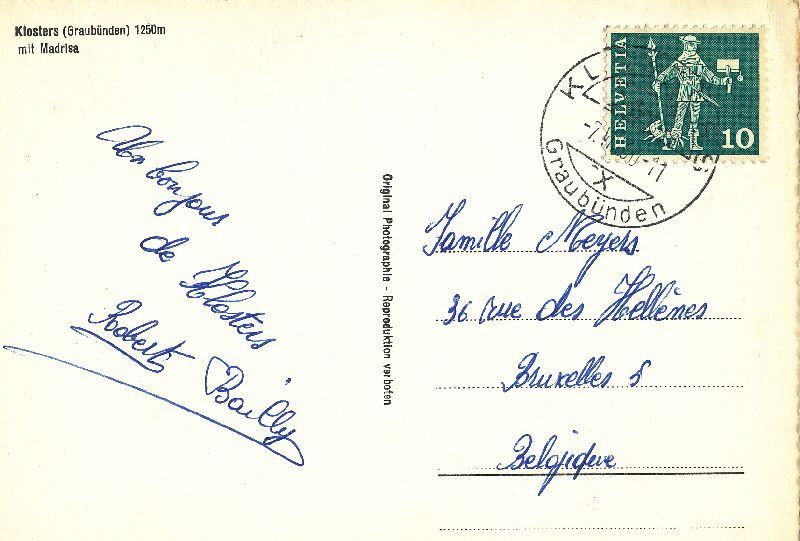 Klosters (Graubünden) 1250m
mit Madrisa
Un bonjour
de Klosters
Robert Bailly
Original Photographie - Reproduktion verboten
HELVETIA
10
Graubünden
Famille Meyers
36 rue des Hellènes
Bruxelles 5
Belgique